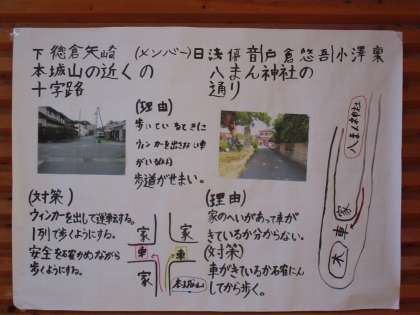 下徳倉矢崎 (メンバー) 日浅 優音 戸倉悠吾 小澤栗
本城山の近くの
十字路
八まん神社の
通り
(理由)
歩いているときに
ウィンカーを出さない車
がいるから
歩道がせまい。
(対策)
ウィンカーを出して運転する。
1列で歩くようにする。
安全を確かめながら
歩くようにする。
家
家
車
車
家
本城山
(理由)
家のへいがあって車が
きているか分からない。
(対策)
車がきているか確にん
してから歩く。
八まん神社
家
車
木